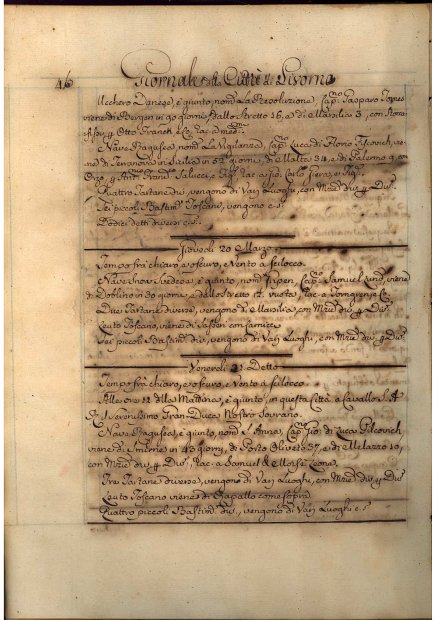 46
Giornale della Città di Livorno
Ucchero Danese, è giunto, nom. La Revoluzione, Cap.no Gasparo
viene di Bergen in 90 giorni, dallo Stretto 26, e di Marsilia 3, con
& Otto Franck e Co.
Nave Ragusea nom. La Vigilanza, Cap.no Luca di Florio
ne di Terranova in Sicilia in 52 giorni, di Malta 31 e di Palermo 9 con
Orzo, Fran. Saluci, e Rac. a Carlo
Quattro Tartane div. vengono di Varj Luoghi, con Mrzie div. p. Div.
Sei piccoli Bastim. Toscani, vengono c. s.
Dodici detti diversi c. s.
Giovedi 20 Marzo
Tempo frà chiaro e oscuro, e Vento a scilocco
Nave Svedese, è giunto, nom. Cap.no Samuel viene
di Doblino in 30 giorni, e dallo Stretto 12 vuota, Rac. a
Due Tartane diverse, vengono di Marsilia, con Mrzie div. p. Div.
Leuto Toscano, viene di con
Sei piccoli Toscani div., vengono di Varj Luoghi, con Mrzie div. p. Div.
Venerdi 21 Detto
Tempo frà chiaro, e oscuro, e Vento à scilocco
Alle ore 12 della Mattina, è giunto, in questa Città a Cavallo S. A.
R. il Serenissimo Gran Duca Nostro Sovrano.
Nave Ragusea, è giunto, nom. S. Anna, Cap.no Gio. di Luca
viene di Smirne in 43 giorni, di Porto Oliveto 37, e di Melazzo 10,
con Mrzie div. p. Div., Rac. a Samuel & Moisè Leone
Tre Tartane diverse, vengono di Varj Luoghi, con Mrzie div. p. Div.
Leuto Toscano viene di Rapallo come sopra
Quattro piccoli Bastim. div., vengono di Varj Luoghi c. s.